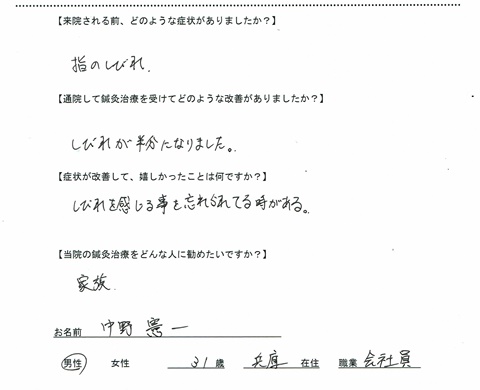 【来院される前、どのような症状がありましたか?】
指のしびれ.
【通院して鍼灸治療を受けてどのような改善がありましたか?】
しびれが半分になりました。
【症状が改善して、嬉しかったことは何ですか?】
しびれを感じる事を忘れられてる時がある。
【当院の鍼灸治療をどんな人に勧めたいですか?】
家族.
お名前 中野 憲一
男性 女性 31歳 兵庫 在住 職業 会社員